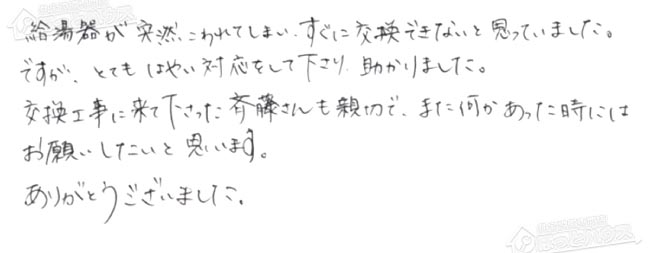 給湯器が突然こわれてしまい、すぐに交換できないと思っていました。
ですが、とてもはやい対応をして下さり、助かりました。
交換工事に来て下さった斉藤さんも親切で、また何かあった時には
お願いしたいと思います。
ありがとうございました。